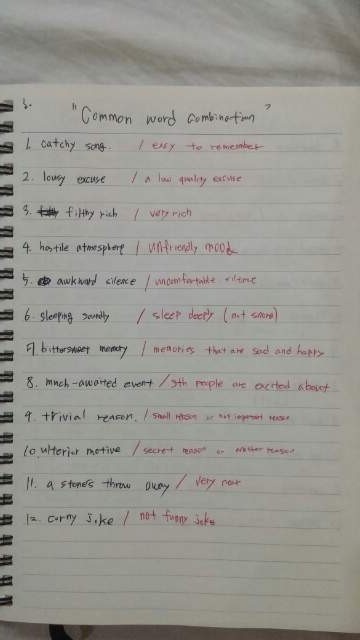 3.
" Common word combination "
1. catchy song. / easy to remember
2. lousy excuse / a low quality excuse
3. filthy rich / very rich
4. hostile atmosphere / unfriendly mood
5. awkward silence / uncomfortable silence
6. sleeping soundly / sleep deeply (not snore)
7. bittersweet memory / memories that are sad and happy
8. much-awaited event / sth people are excited about
9. trivial reason. / small reason or not important reason
10. ulterior motive / secret reason or another reason
11. a stone's throw away / very near
12. corny joke / not funny joke